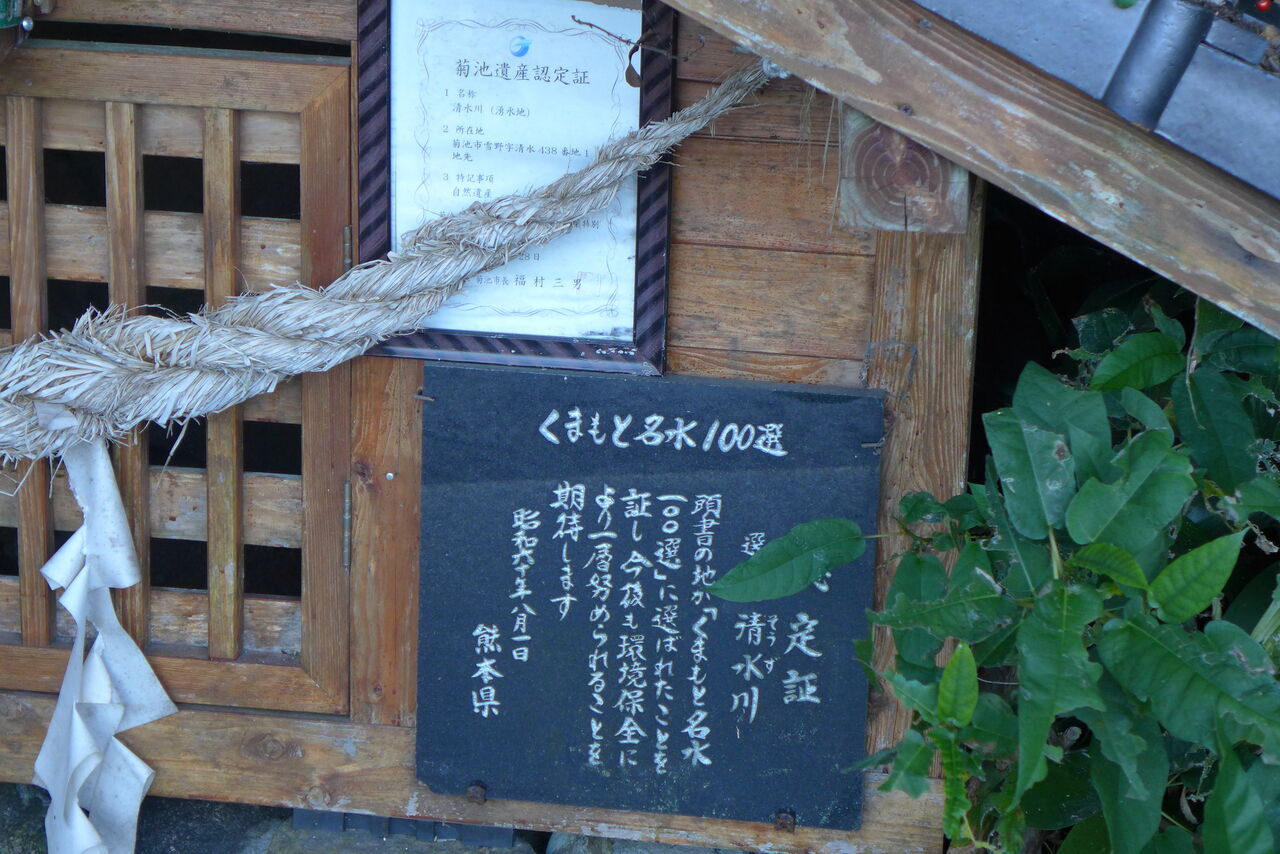 菊池遺産認定証
1 名称
清水川（湧水地）
2 所在地
菊池市雪野字清水438番地1
地先
3 特記事項
自然遺産
特別
28日
菊池市長 福村三男
くまもと名水100選
選 定証
そうず
清水川
頭書の地が「くまもと名水
一〇〇選」に選ばれたことを
証し今後も環境保全に
より一層努められることを
期待します
昭和六十年八月一日
熊本県